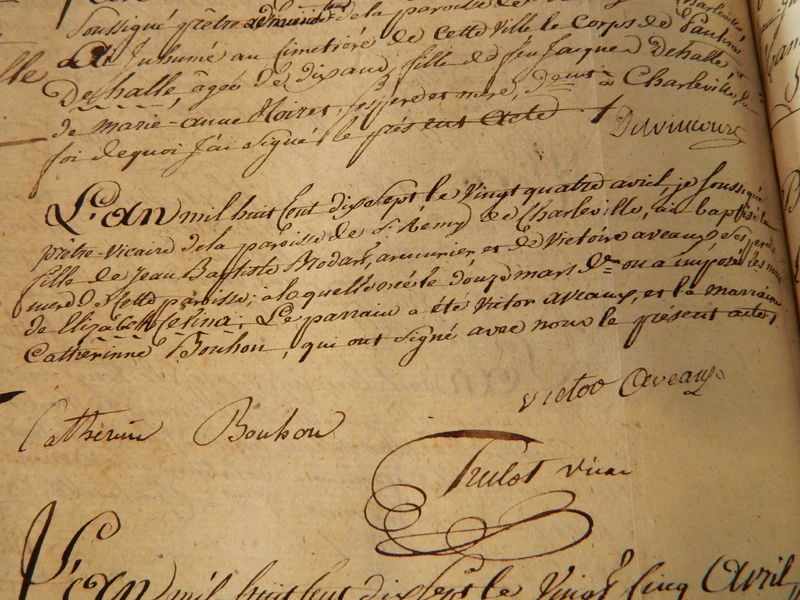 Soussigné prêtre de la paroisse de Charleville,
ille
ai Inhumé au Cimetiére de Cette Ville le Corps de
Dehalle, âgée de dix ans, fille de feu Jacque Dehalle, et
de marie-anne Noiret, ses pere et mere, à Charleville, En
foi de quoi J'ai Signé le présent acte
L'an mil huit Cent dix sept le Vingt quatre avril, je Soussigné
prêtre-vicaire de la paroisse de St Remy de Charleville, ai baptisé la
fille de Jean Baptiste Rodart, armurier, et de Victoire aveaux, Ses pere et
mere de Cette paroisse; à laquelle née le douze mars dr on a imposé les noms
de Elizabeth Celina; Le parrain a été Victor aveaux, et la marraine
Catherinne Bouhon, qui ont signé avec nous le présent acte.
Victor Aveaux
Catherine Bouhon
Trulot Vicai
L'an mil huit Cent dix Sept le Vingt Cinq Avril,